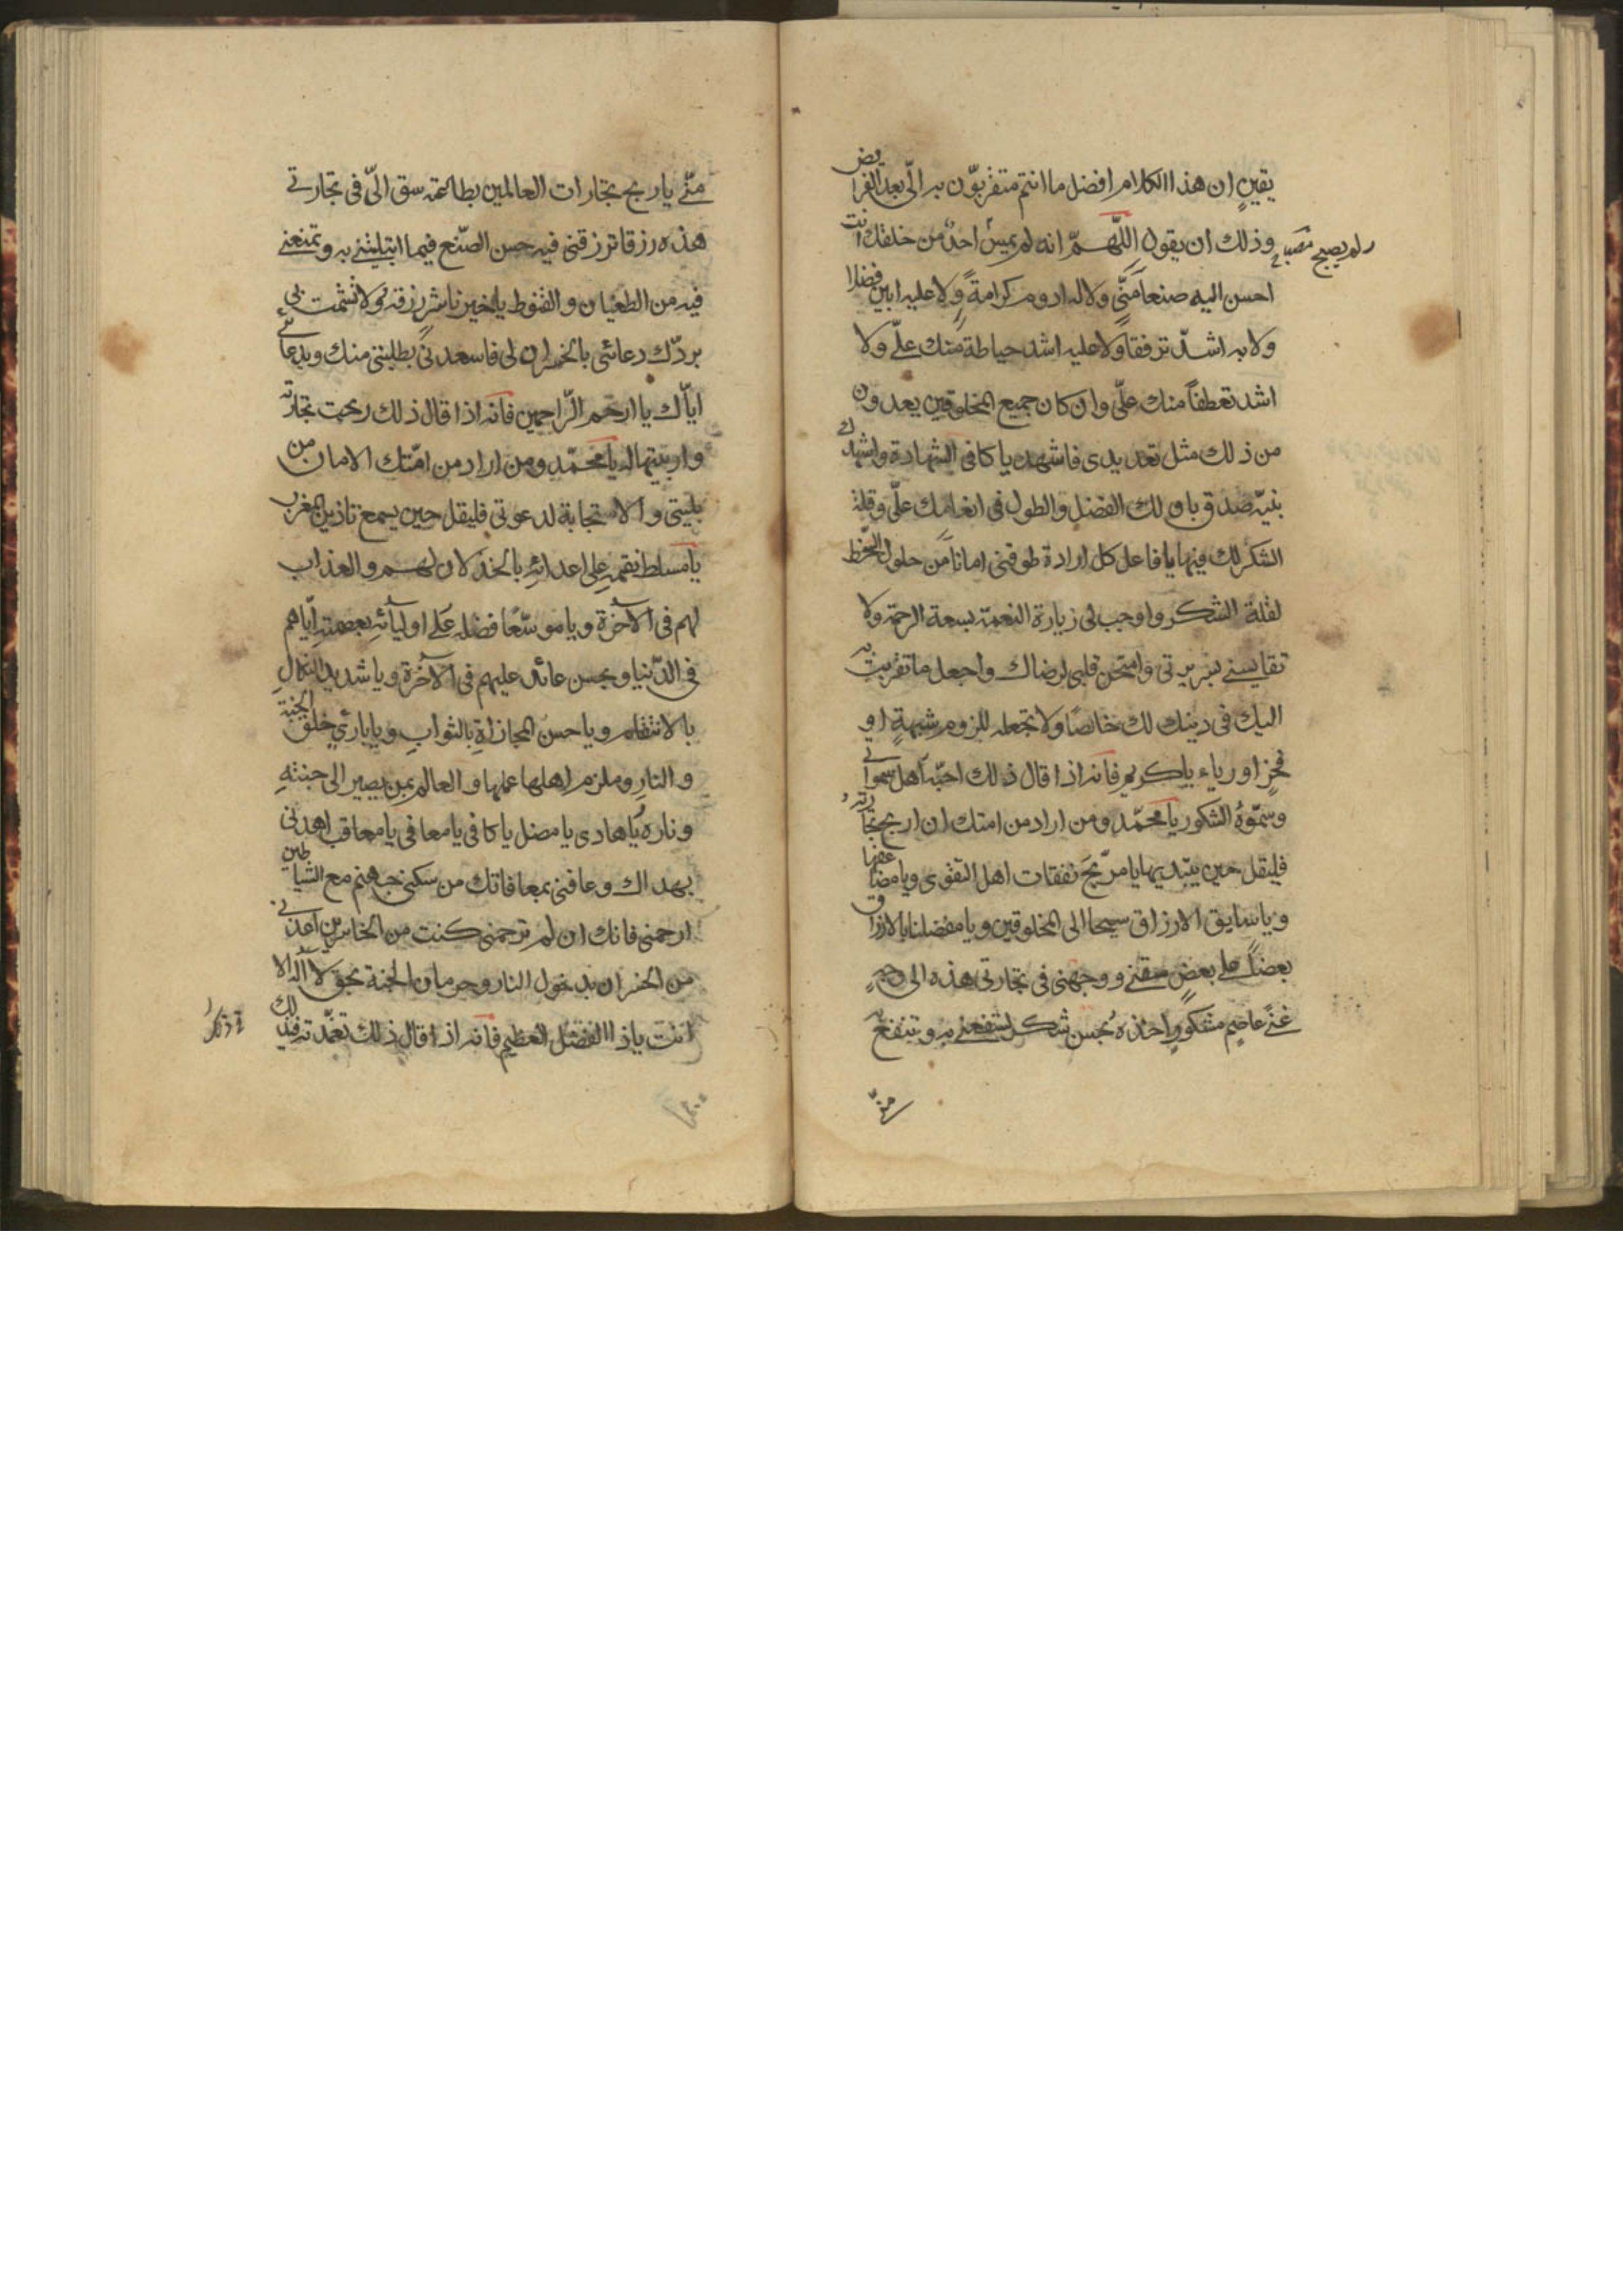 يقينٍ ان هذا الكلام افضل ما انتم متقربّون به الىّ بعد الفرايض
وذلك ان يقول اللّهمّ انه لم يمس احدٌ من خلقك انت
ولم يصبح
احسن اليه صنعاً منّى ولا له ادوم كرامةً ولا عليه ابين فضلا
ولا به اشدّ ترفقا ولا عليه اشد حياطة منك علىّ ولا
اشد تعطفاً منك علىّ وان كان جميع المخلوقين يعددون
من ذلك مثل تعديدى فاشهد يا كافى الشهادة واشهدك
بنيّة صدق بان لك الفضل والطول فى انعامك علىّ وقلة
الشكر لك فيها يا فاعل كل ارادة طوقنى اماناً من حلول السخط
لقلة الشكر واوجب لى زيادة النعمة بسعة الرحمة ولا
تقايسنى بسريرتى وامتحن قلبى لرضاك واجعل ما تقربت به
اليك فى دينك لك خالصًا ولا تجعله للزوم شبهةٍ او
فخرٍ او رياء يا كريم فانه اذا قال ذلك احبّه اهل سمواتى
وسمّوهُ الشكور يا محمّد ومن اراد من امتك ان اربح تجارته
فليقل حين يبتدى بها يا مربّح نفقات اهل التقوى ويا مضاعفها
ويا سايق الارزاق سيحا الى المخلوقين ويا مفضلنا بالارزاق
بعضاً على بعضٍ سقنى ووجهنى فى تجارتى هذه الى وجهٍ
غنىً عاصمٍ مشكورٍ اخذه بحسن شكر لتنفعنى به وتنفع به
منّى
منّى يا ربح تجارات العالمين بطاعته سق الىّ فى تجارتى
هذه رزقا ترزقنى فيه حسن الصّنع فيما ابتليتنى به وتمنعنى
فيه من الطغيان والقنوط يا خير ناشر رزقه ولا تشمت بى
بردّك دعائى بالخسران لى فاسعدنى بطلبتى منك وبدعائى
ايّاك يا ارحم الرّاحمين فانه اذا قال ذلك ربحت تجارته
واربيتها له يا محمّد ومن اراد من امّتك الامان من
بليتى والاستجابة لدعوتى فليقل حين يسمع تاذين المغرب
يا مسلط نقمهِ على اعدائهِ بالخذلان لهم والعذاب
لهم فى الآخرة ويا موسّعًا فضله على اوليائه بعصمته ايّاهم
فى الدّنيا وبحسن عائدهِ عليهم فى الآخرة ويا شديد النكالِ
بالانتقام ويا حسن المجازاةِ بالثوابِ ويا بارئ خلق الجنة
والنارِ وملزم اهلها عملها والعالم بمن يصير الى جنتهِ
وناره يا هادى يا مضل يا كافى يا معافى يا معاقب اهدنى
بهداك وعافنى بمعافاتك من سكنى جهنم مع الشياطين
ارحمنى فانك ان لم ترحمنى كنت من الخاسرين اعذنى
من الخسران بدخول النار وحرمان الجنة بحق لا اله الا
انت يا ذا الفضل العظيم فانه اذا قال ذلك تغمّدته فى ذلك